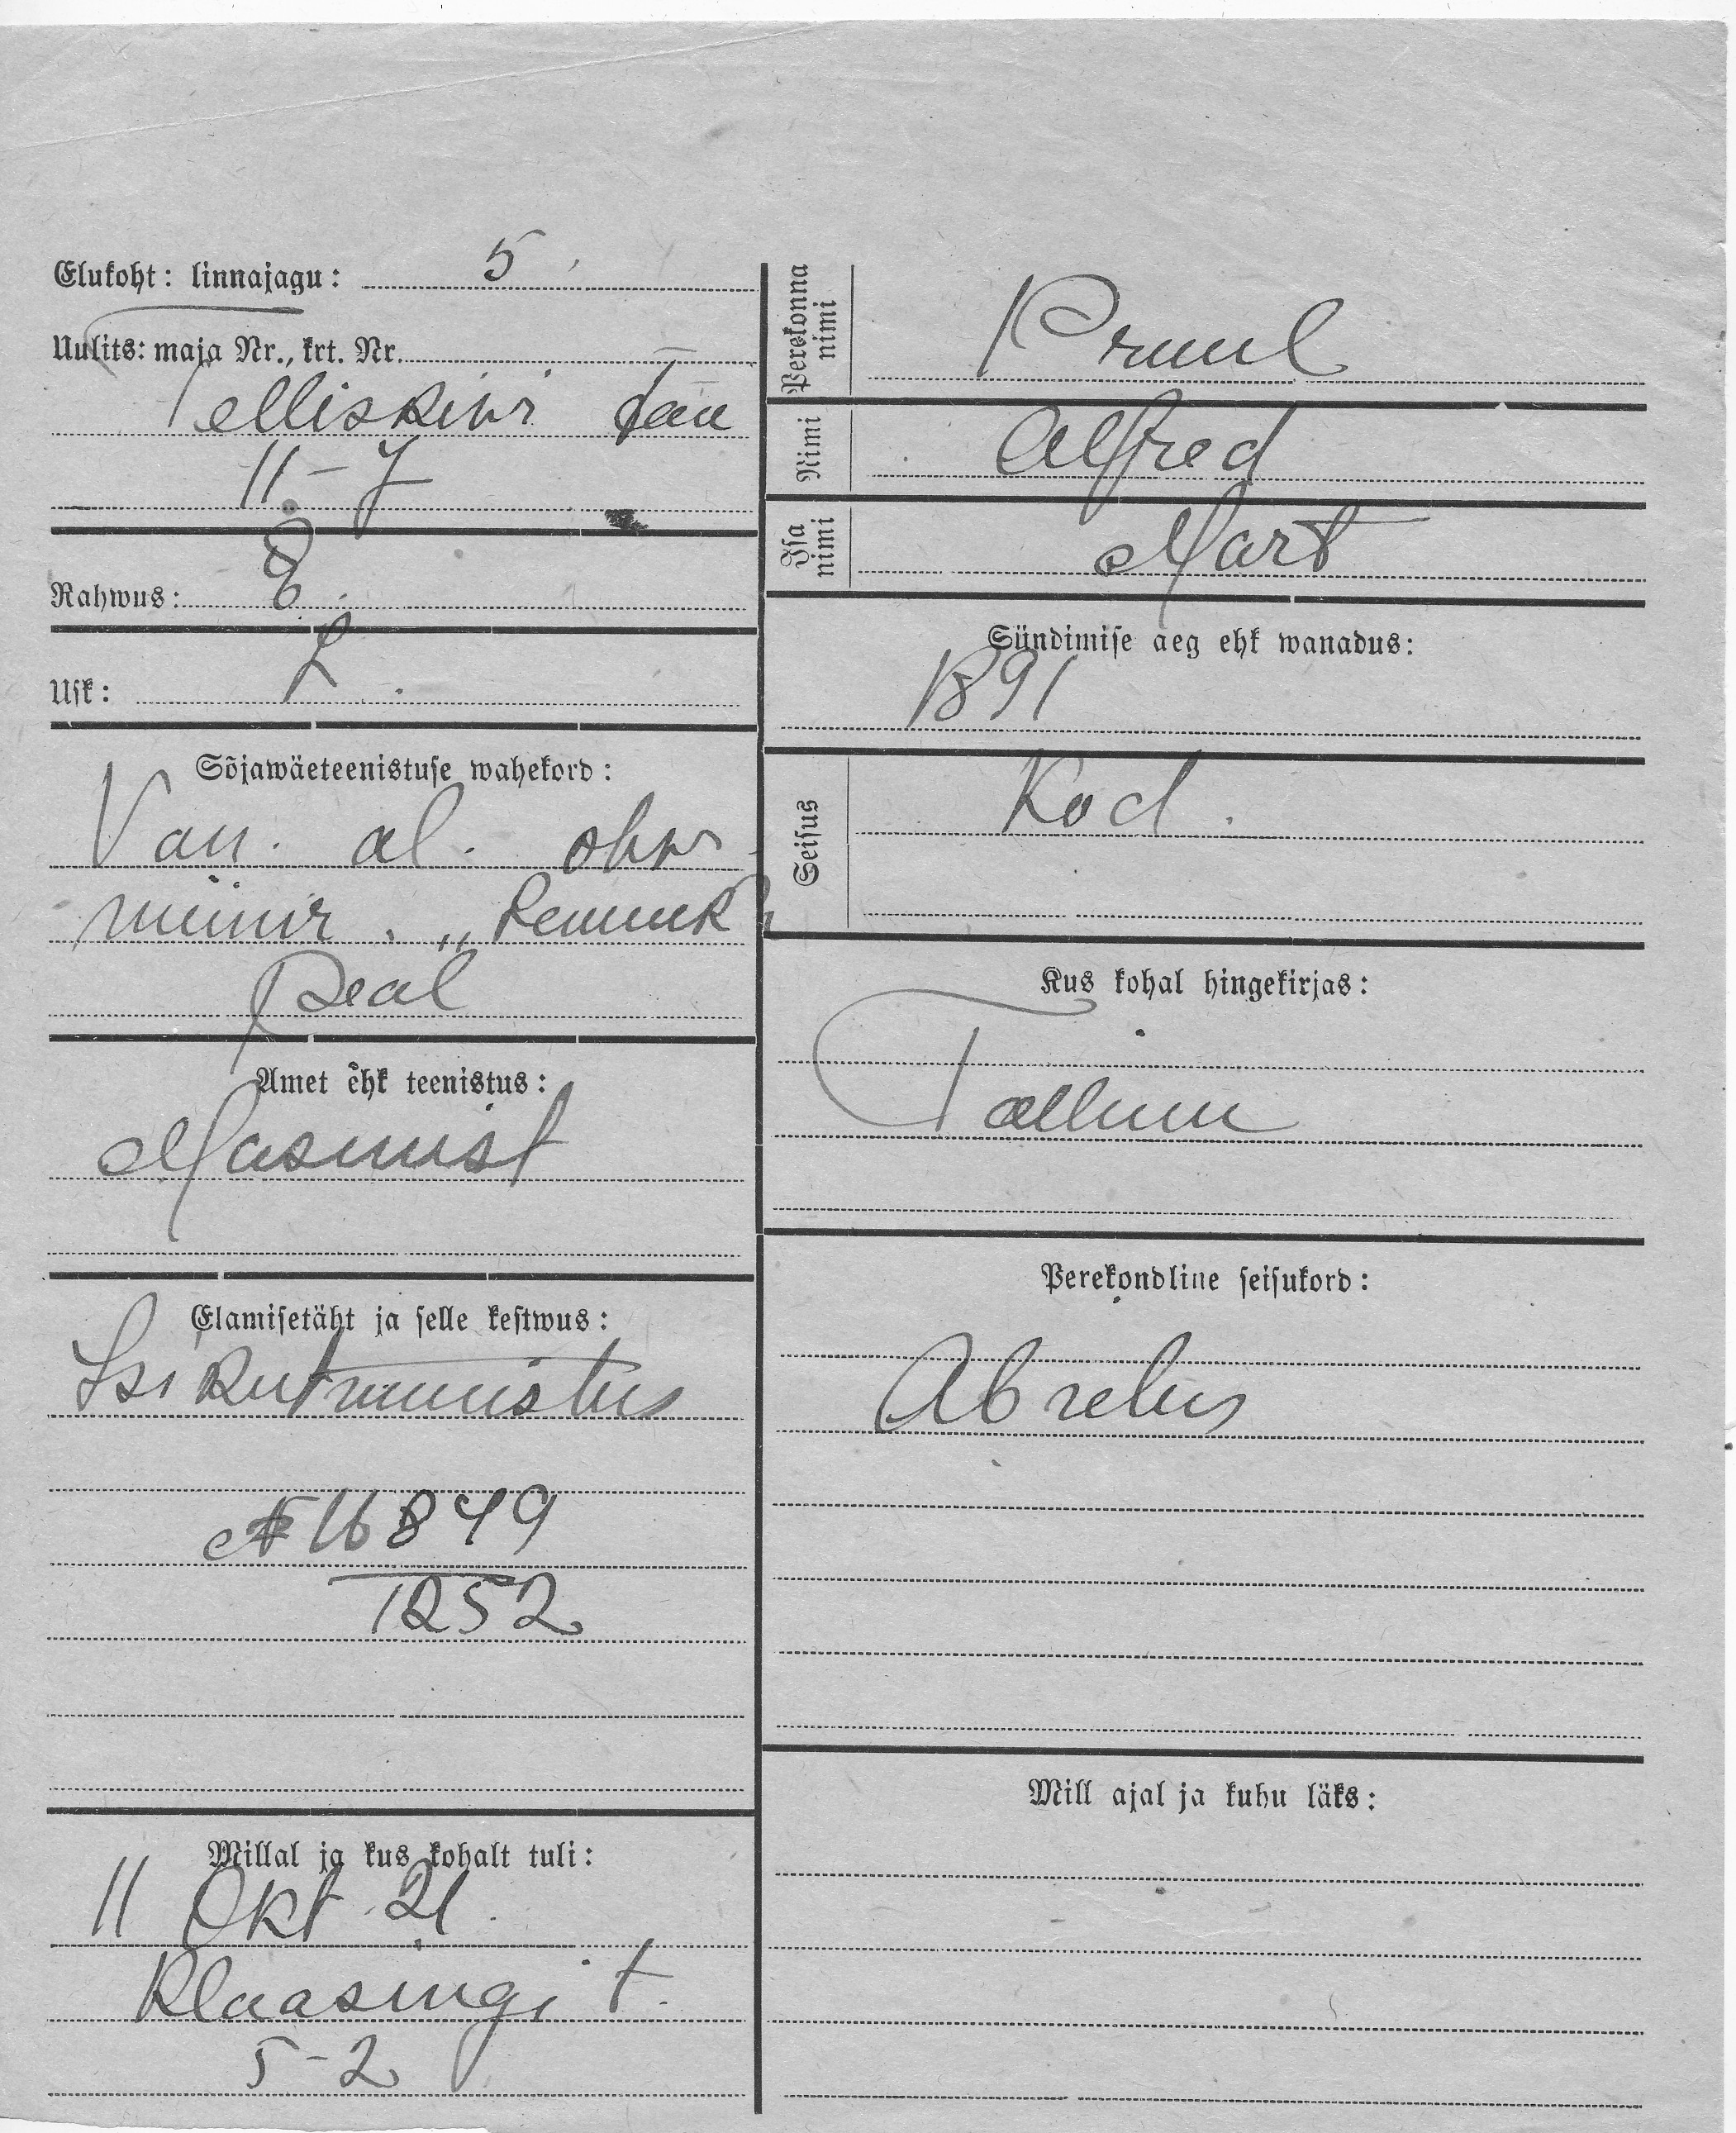 Elukoht: linnajagu: 5
Uulits: maja Nr., krt. Nr.
Telliskivi tän
11-7
Rahwus: E.
Usk: L.
Sõjawäeteenistuse wahekord:
Van. al. ohw.
miinir. „
peal
Amet ehk teenistus:
Masinist
Elamisetäht ja selle kestwus:
Isikutunnistus
№ 16849
1252
Millal ja kus kohalt tuli:
11 Okt. 21.
Klaasingi t.
5-2
Perekonna nimi
Pruul
Nimi
Alfred
Isa nimi
Mart
Sündimise aeg ehk wanadus:
1891
Seisus
Kod.
Kus kohal hingekirjas:
Tallinn
Perekondline seisukord:
Abielus
Mill ajal ja kuhu läks: